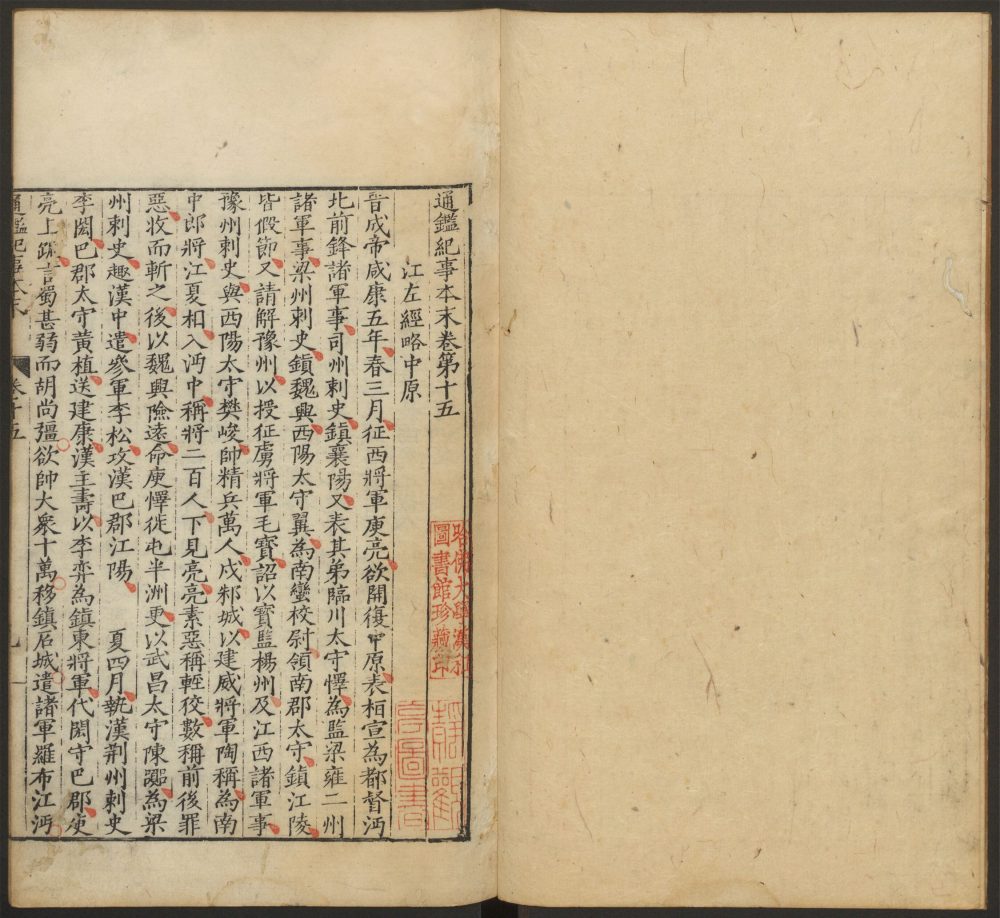 通鑑紀事本末卷第十五
江左經略中原
晉成帝咸康五年春三月征西將軍庾亮欲開復中原表桓宣為都督沔
北前鋒諸軍事司州刺史鎮襄陽又表其弟臨川太守懌為監梁雍二州
諸軍事梁州刺史鎮魏興西陽太守翼為南蠻校尉領南郡太守鎮江陵
皆假節又請解豫州以授征虜將軍毛寶詔以寶監楊州及江西諸軍事
豫州刺史與西陽太守樊峻帥精兵萬人戍邾城以建威將軍陶稱為南
中郎將江夏相入沔中稱將二百人下見亮亮素惡稱輕狡數稱前後罪
惡收而斬之後以魏興險遠命庾懌徙屯半洲更以武昌太守陳囂為梁
州刺史趣漢中遣參軍李松攻漢巴郡江陽 夏四月執漢荊州刺史
李閎巴郡太守黃植送建康漢主壽以李弈為鎮東將軍代閎守巴郡庾
亮上疏言蜀甚弱而胡尚彊欲帥大衆十萬移鎮石城遣諸軍羅布江沔
通鑑紀事本末 卷十五
哈佛大學漢和
圖書館珍藏印
圖書